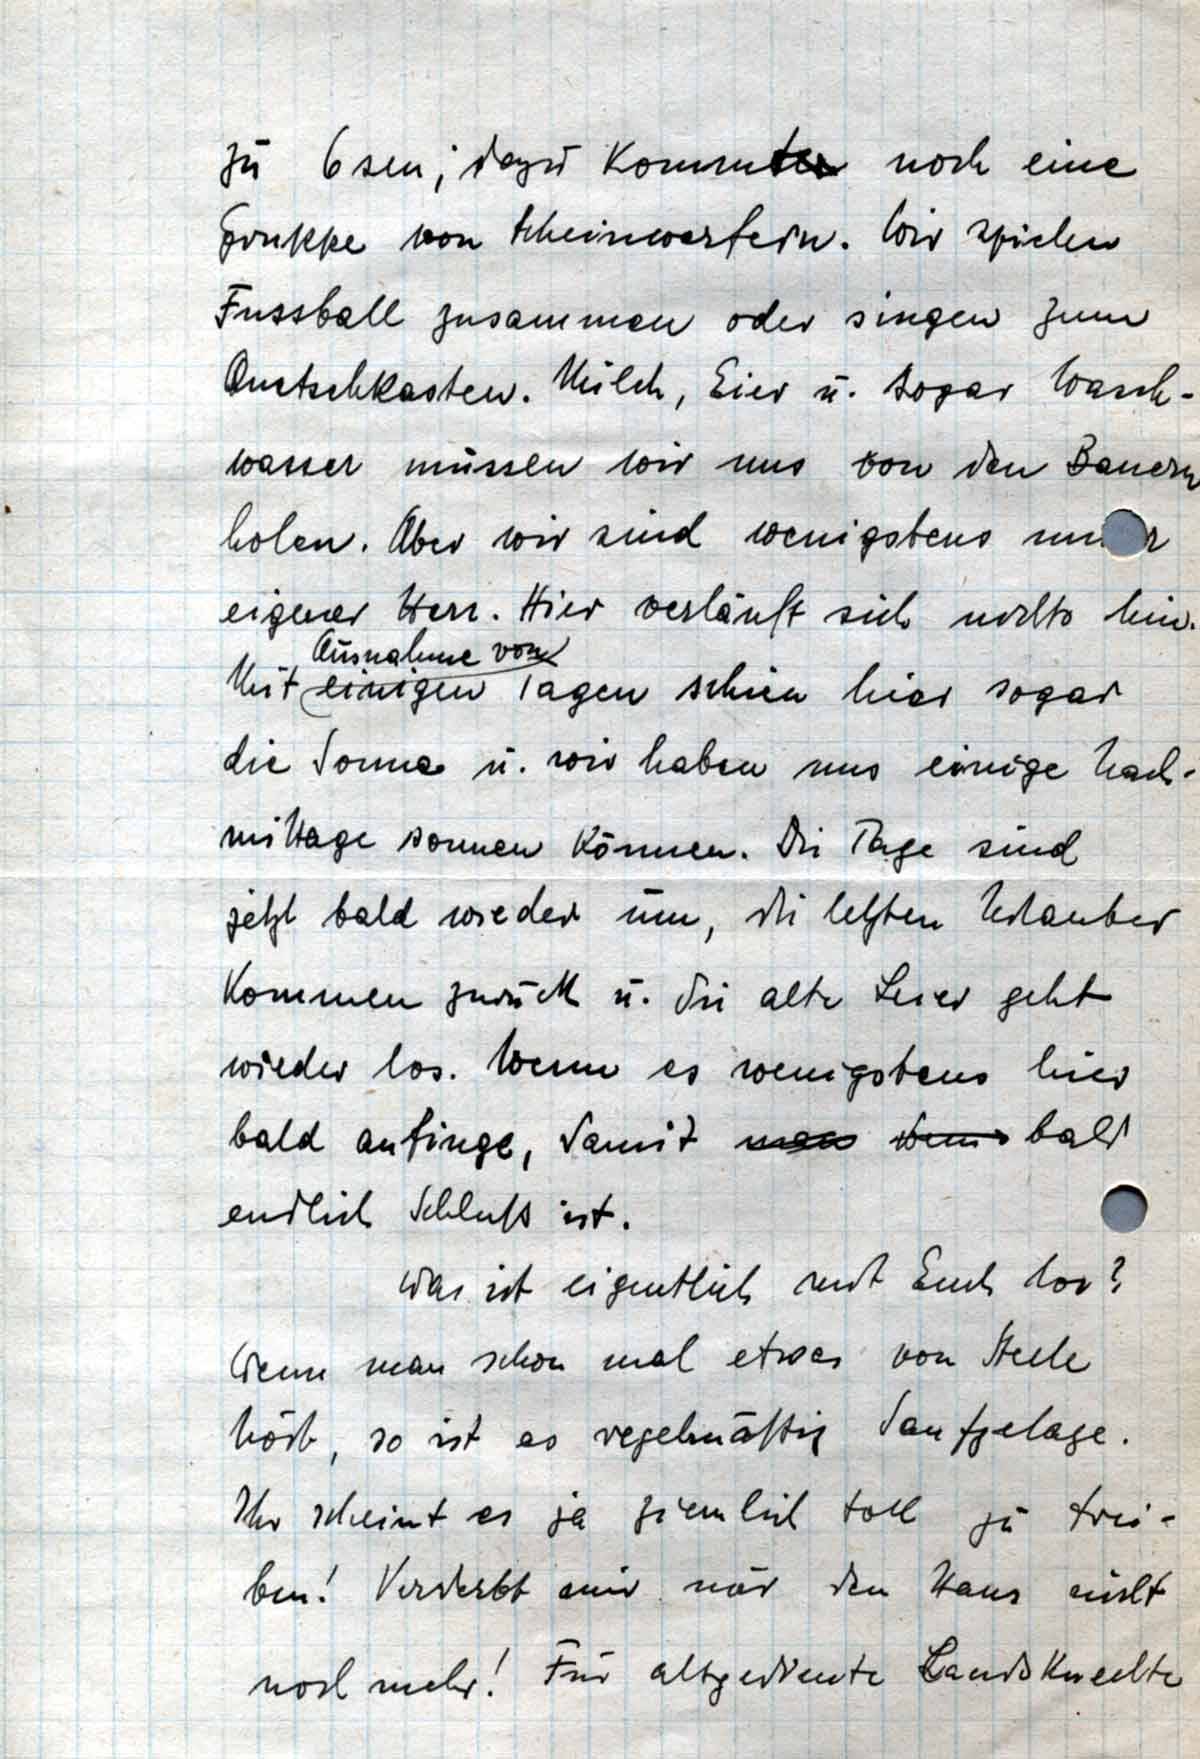 zu 6sen; dazu kommt noch eine
Gruppe von Scheinwerfern. Wir spielen
Fussball zusammen oder singen zum
Quetschkasten. Milch, Eier u. sogar Wasch-
wasser müssen wir uns von den Bauern
holen. Aber wir sind wenigstens unser
eigener Herr. Hier verläuft sich nichts hin.
Ausnahme von
Mit einigen Tagen schien hier sogar
die Sonne u. wir haben uns einige Nach-
mittage sonnen können. Die Tage sind
jetzt bald wieder um, die letzten Urlauber
kommen zurück u. die alte Leier geht
wieder los. Wenn es wenigstens hier
bald anfinge, damit bald
endlich Schluß ist.
Was ist eigentlich mit Euch los?
Wenn man schon mal etwas von Steele
hört, so ist es regelmäßig Saufgelage.
Ihr scheint es ja ziemlich toll zu trei-
ben! Verderbt mir nur den Hans nicht
noch mehr! Für altgediente Landsknechte